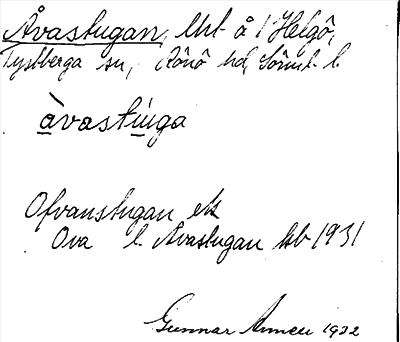 Åvastugan, lht å 1 Helgö,
Tystberga sn, Rönö hd, Sörml. l.
àvastúga
Ofvanstugan ek
Ova l. Åvastugan kb 1931
Gunnar 1932